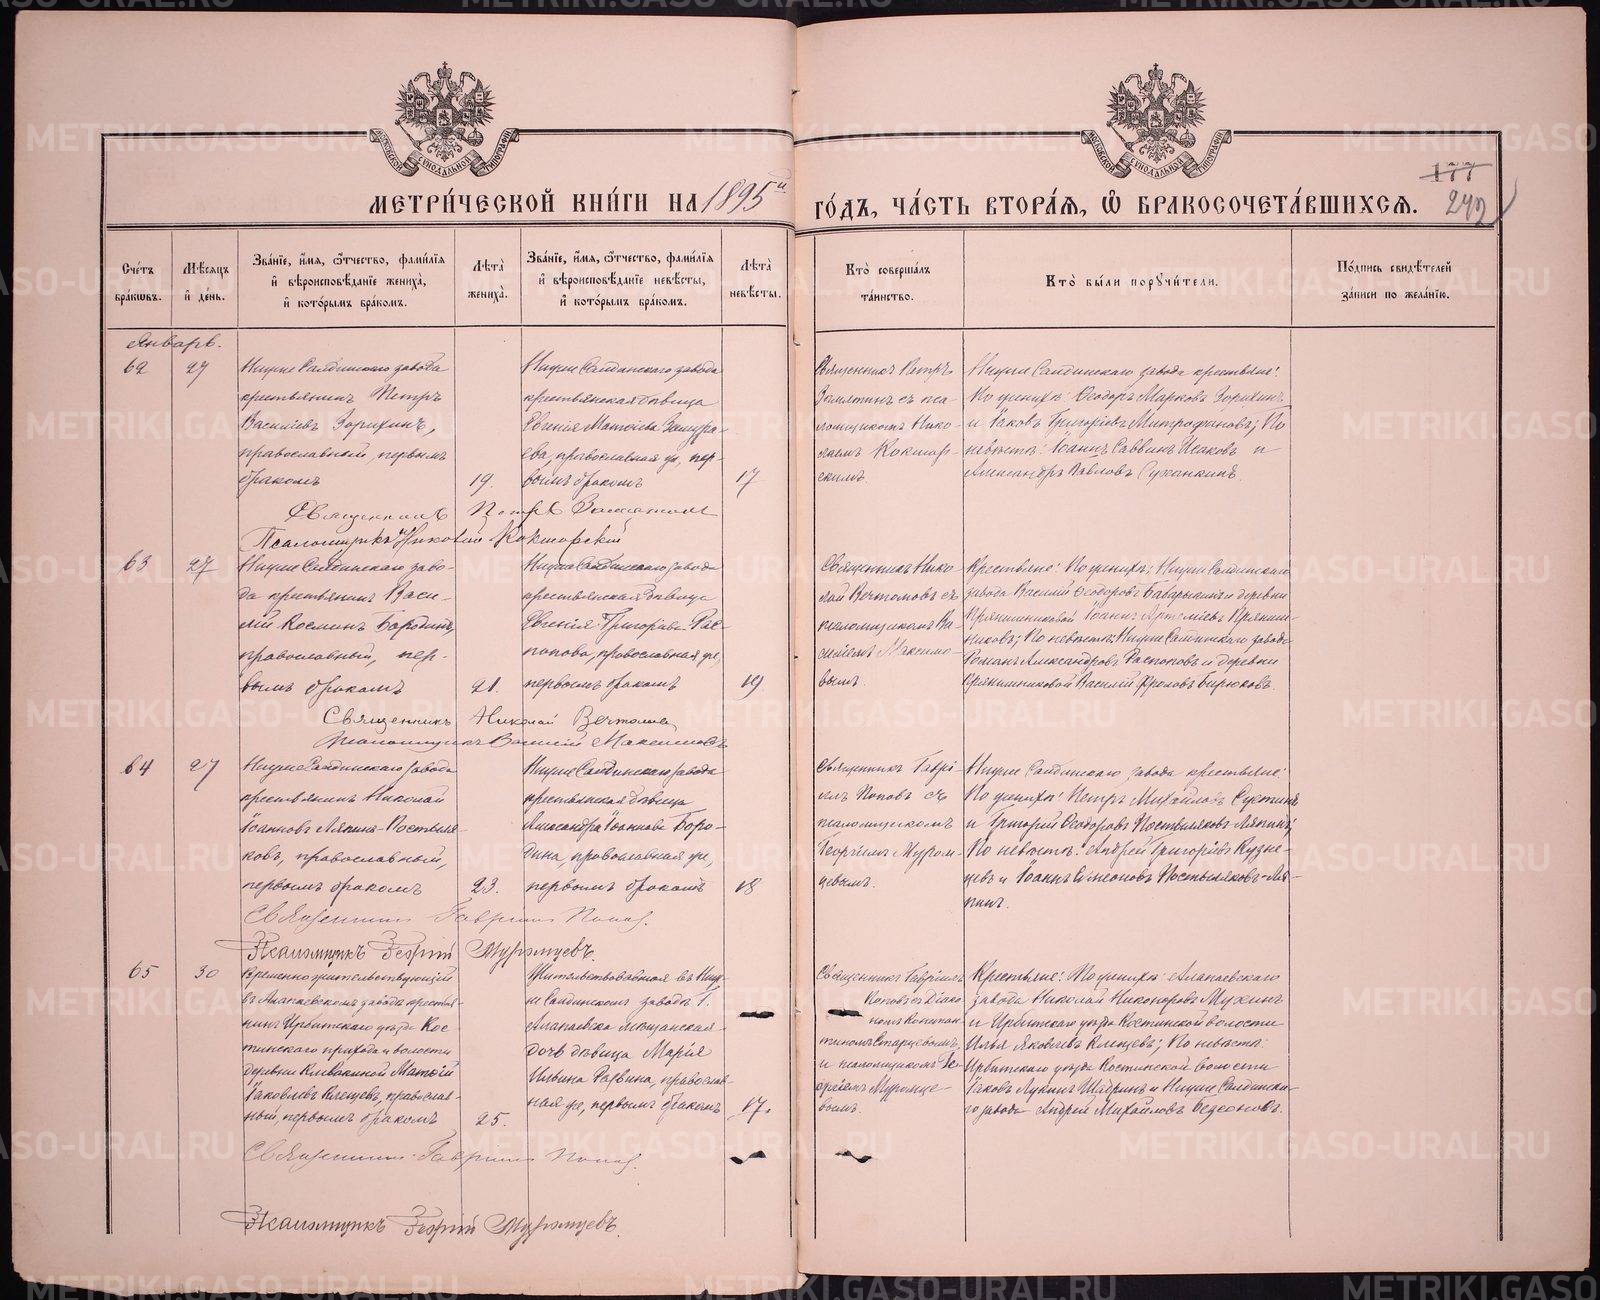 МЕТРИ́ЧЕСКОЙ КНИ́ГИ НА 1895й ГО́ДЪ, ЧА́СТЬ ВТОРА́Я, Ѡ БРАКОСОЧЕТА́ВШИХСЯ.
177
242
Сче́тъ бра́кѡвъ.
Мѣ́сяцъ и҆ де́нь.
Зва́нїе, и҆́мя, ѻ҆́тчество, фами́лїя и҆ вѣроисповѣ́данїе жениха̀, и҆ кото́рымъ бра́комъ.
Лѣта̀ жениха̀.
Зва́нїе, и҆́мя, ѻ҆́тчество, фами́лїя и҆ вѣроисповѣ́данїе невѣ́сты, и҆ кото́рымъ бра́комъ.
Лѣта̀ невѣ́сты.
Кто̀ соверша́лъ та́инство.
Кто̀ бы́ли порꙋчи́тели.
По́дпись свидѣ́телей за́писи по жела́нїю.
Январь.
62
27
Нижне Салдинскаго завода
крестьянинъ Петръ
Васильевъ Зорихинъ,
православный, первымъ
бракомъ
19.
Нижне Салдинскаго завода
крестьянская дѣвица
Евгенія Матѳіева Замура-
ева, православная же, пер-
вымъ бракомъ
17
Священникъ Петръ
Замятинъ съ пса-
ломщикомъ Нико-
лаемъ Кокшар-
скимъ.
Нижне Салдинскаго завода крестьяне:
По женихѣ: Ѳеодоръ Марковъ Зорихинъ
и Іаковъ Григорьевъ Митрофановъ; По
невѣстѣ: Іоаннъ Саввинъ Исаковъ и
Александръ Павловъ Суханкинъ.
Священникъ Петръ Замятинъ
Псаломщикъ Николай Кокшарскій
63
27
Нижне Салдинскаго заво-
да крестьянинъ Васи-
лій Косминъ Бородинъ,
православный, пер-
вымъ бракомъ
21.
Нижне Салдинскаго завода
крестьянская дѣвица
Евгенія Григорьева Рас-
попова, православная же,
первымъ бракомъ
19
Священникъ Нико-
лай Вечтомовъ съ
псаломщикомъ Ва-
силіемъ Максимо-
вымъ.
Крестьяне: По женихѣ: Нижне Салдинскаго
завода Василій Ѳеодоровъ Бабарыкинъ и деревни
Прянишниковой Іоаннъ Артеміевъ Пряниш-
никовъ; По невѣстѣ: Нижне Салдинскаго завода
Романъ Александровъ Распоповъ и деревни
Прянишниковой Василій Фроловъ Бирюковъ.
Священникъ Николай Вечтомовъ
Псаломщикъ Василій Максимовъ
64
27
Нижне Салдинскаго завода
крестьянинъ Николай
Іоанновъ Ляпинъ-Постыля-
ковъ, православный,
первымъ бракомъ
23.
Нижне Салдинскаго завода
крестьянская дѣвица
Александра Іоаннова Боро-
дина православная же,
первымъ бракомъ
18
Священникъ Гаврі-
илъ Поповъ съ
псаломщикомъ
Георгіемъ Муром-
цевымъ.
Нижне Салдинскаго завода крестьяне:
По женихѣ: Петръ Михайловъ Сустинъ
и Григорій Ѳеодоровъ Постыляковъ Ляпинъ;
По невѣстѣ: Андрей Григорьевъ Кузне-
цевъ и Іоаннъ Симеоновъ Постыляковъ-Ля-
пинъ.
Священникъ Гавріилъ Поповъ.
Псаломщикъ Георгій Муромцевъ.
65
30
Временно жительствующій
въ Алапаевскомъ заводѣ крестья-
нинъ Ирбитскаго уѣзда Кос-
тинскаго прихода и волости
деревни Клевакиной Матѳій
Іаковлевъ Клещевъ, православ-
ный, первымъ бракомъ
25.
Жительствовавшая въ Ниж-
не Салдинскомъ заводѣ г.
Алапаевска мѣщанская
дочь дѣвица Марія
Ильина православ-
ная же, первымъ бракомъ
17.
Священникъ Гавріилъ
Поповъ съ Діако-
номъ Констан-
тиномъ Старцевымъ
и псаломщикомъ Ге-
оргіемъ Муромце-
вымъ.
Крестьяне: По женихѣ: Алапаевскаго
завода Николай Никоноровъ Мухинъ
и Ирбитскаго уѣзда Костинской волости
Илья Яковлевъ Клещевъ; По невѣстѣ:
Ирбитскаго уѣзда Костинской волости
Іаковъ Лукинъ Шадринъ и Нижне Салдинска-
го завода Андрей Михайловъ
Священникъ Гавріилъ Поповъ.
Псаломщикъ Георгій Муромцевъ.
METRIKI.GASO-URAL.RU